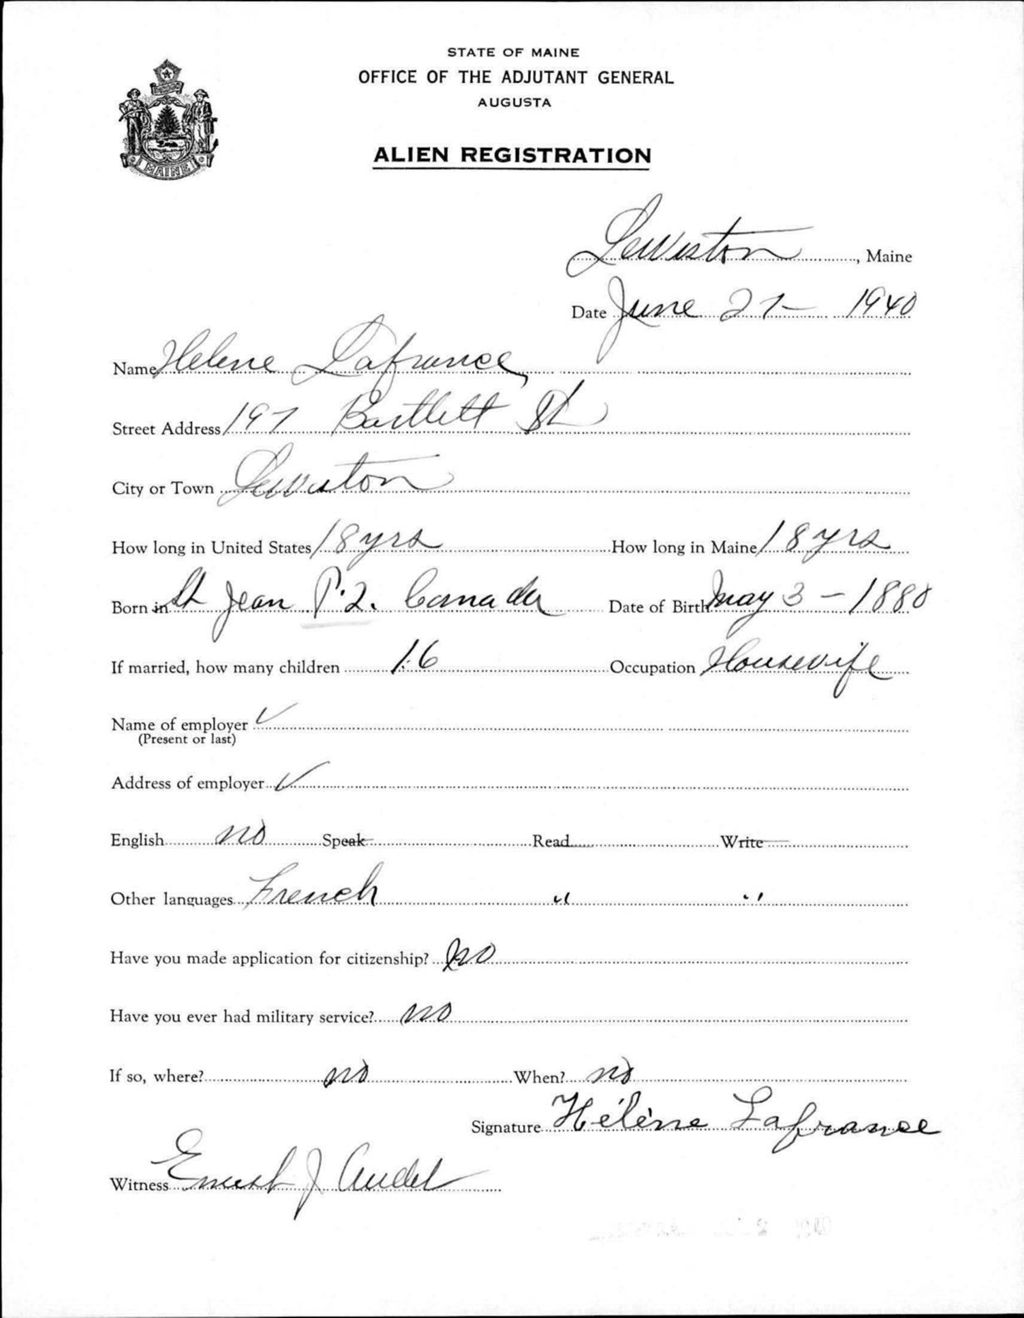 STATE OF MAINE
OFFICE OF THE ADJUTANT GENERAL
AUGUSTA
ALIEN REGISTRATION
MAINE
Lewiston, Maine
Date June 27 - 1940
Name Helene Lafrance
Street Address 197 Bartlett St
City or Town Lewiston
How long in United States 18 yrs How long in Maine 18 yrs
Born in St Jean P.Q. Canada Date of Birth May 3 - 1880
If married, how many children 16 Occupation Housewife
Name of employer ✓
(Present or last)
Address of employer ✓
English no Speak Read Write
Other languages French " "
Have you made application for citizenship? No
Have you ever had military service? no
If so, where? no When? no
Signature Hélène Lafrance
Witness Ernest J Audet